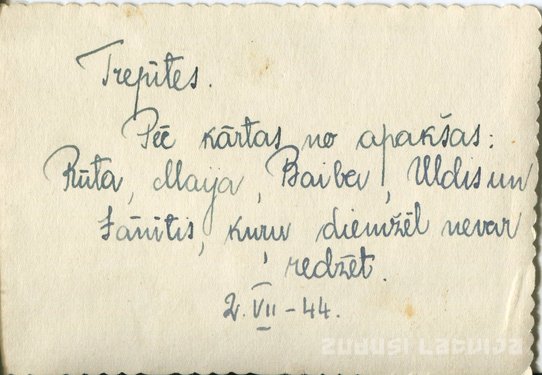 Trepītes.
Pēc kārtas no apakšas:
Rūta, Maija, Baiba, Uldis un
Jānītis, kuru diemžēl nevar
redzēt.
2. VII - 44.
zudusi Latvija